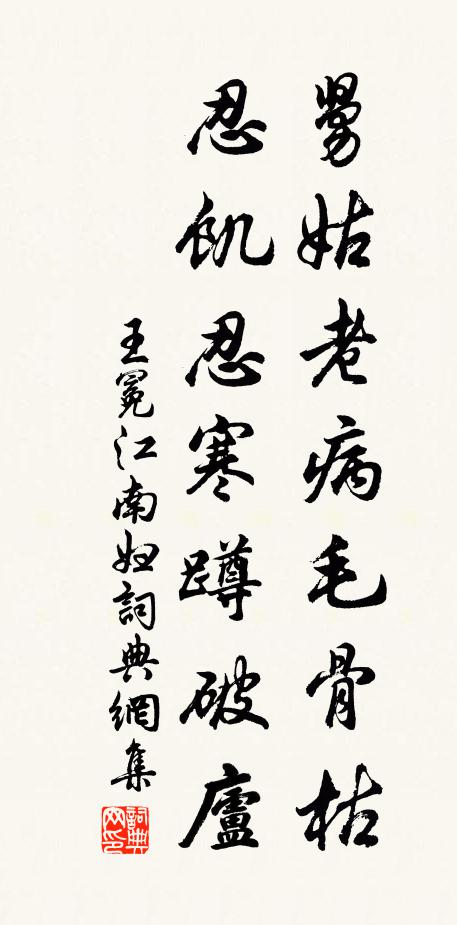 舅姑老病毛骨枯
忍飢忍寒蹲破廬
王冕江南妇詞典網集
詞典网印